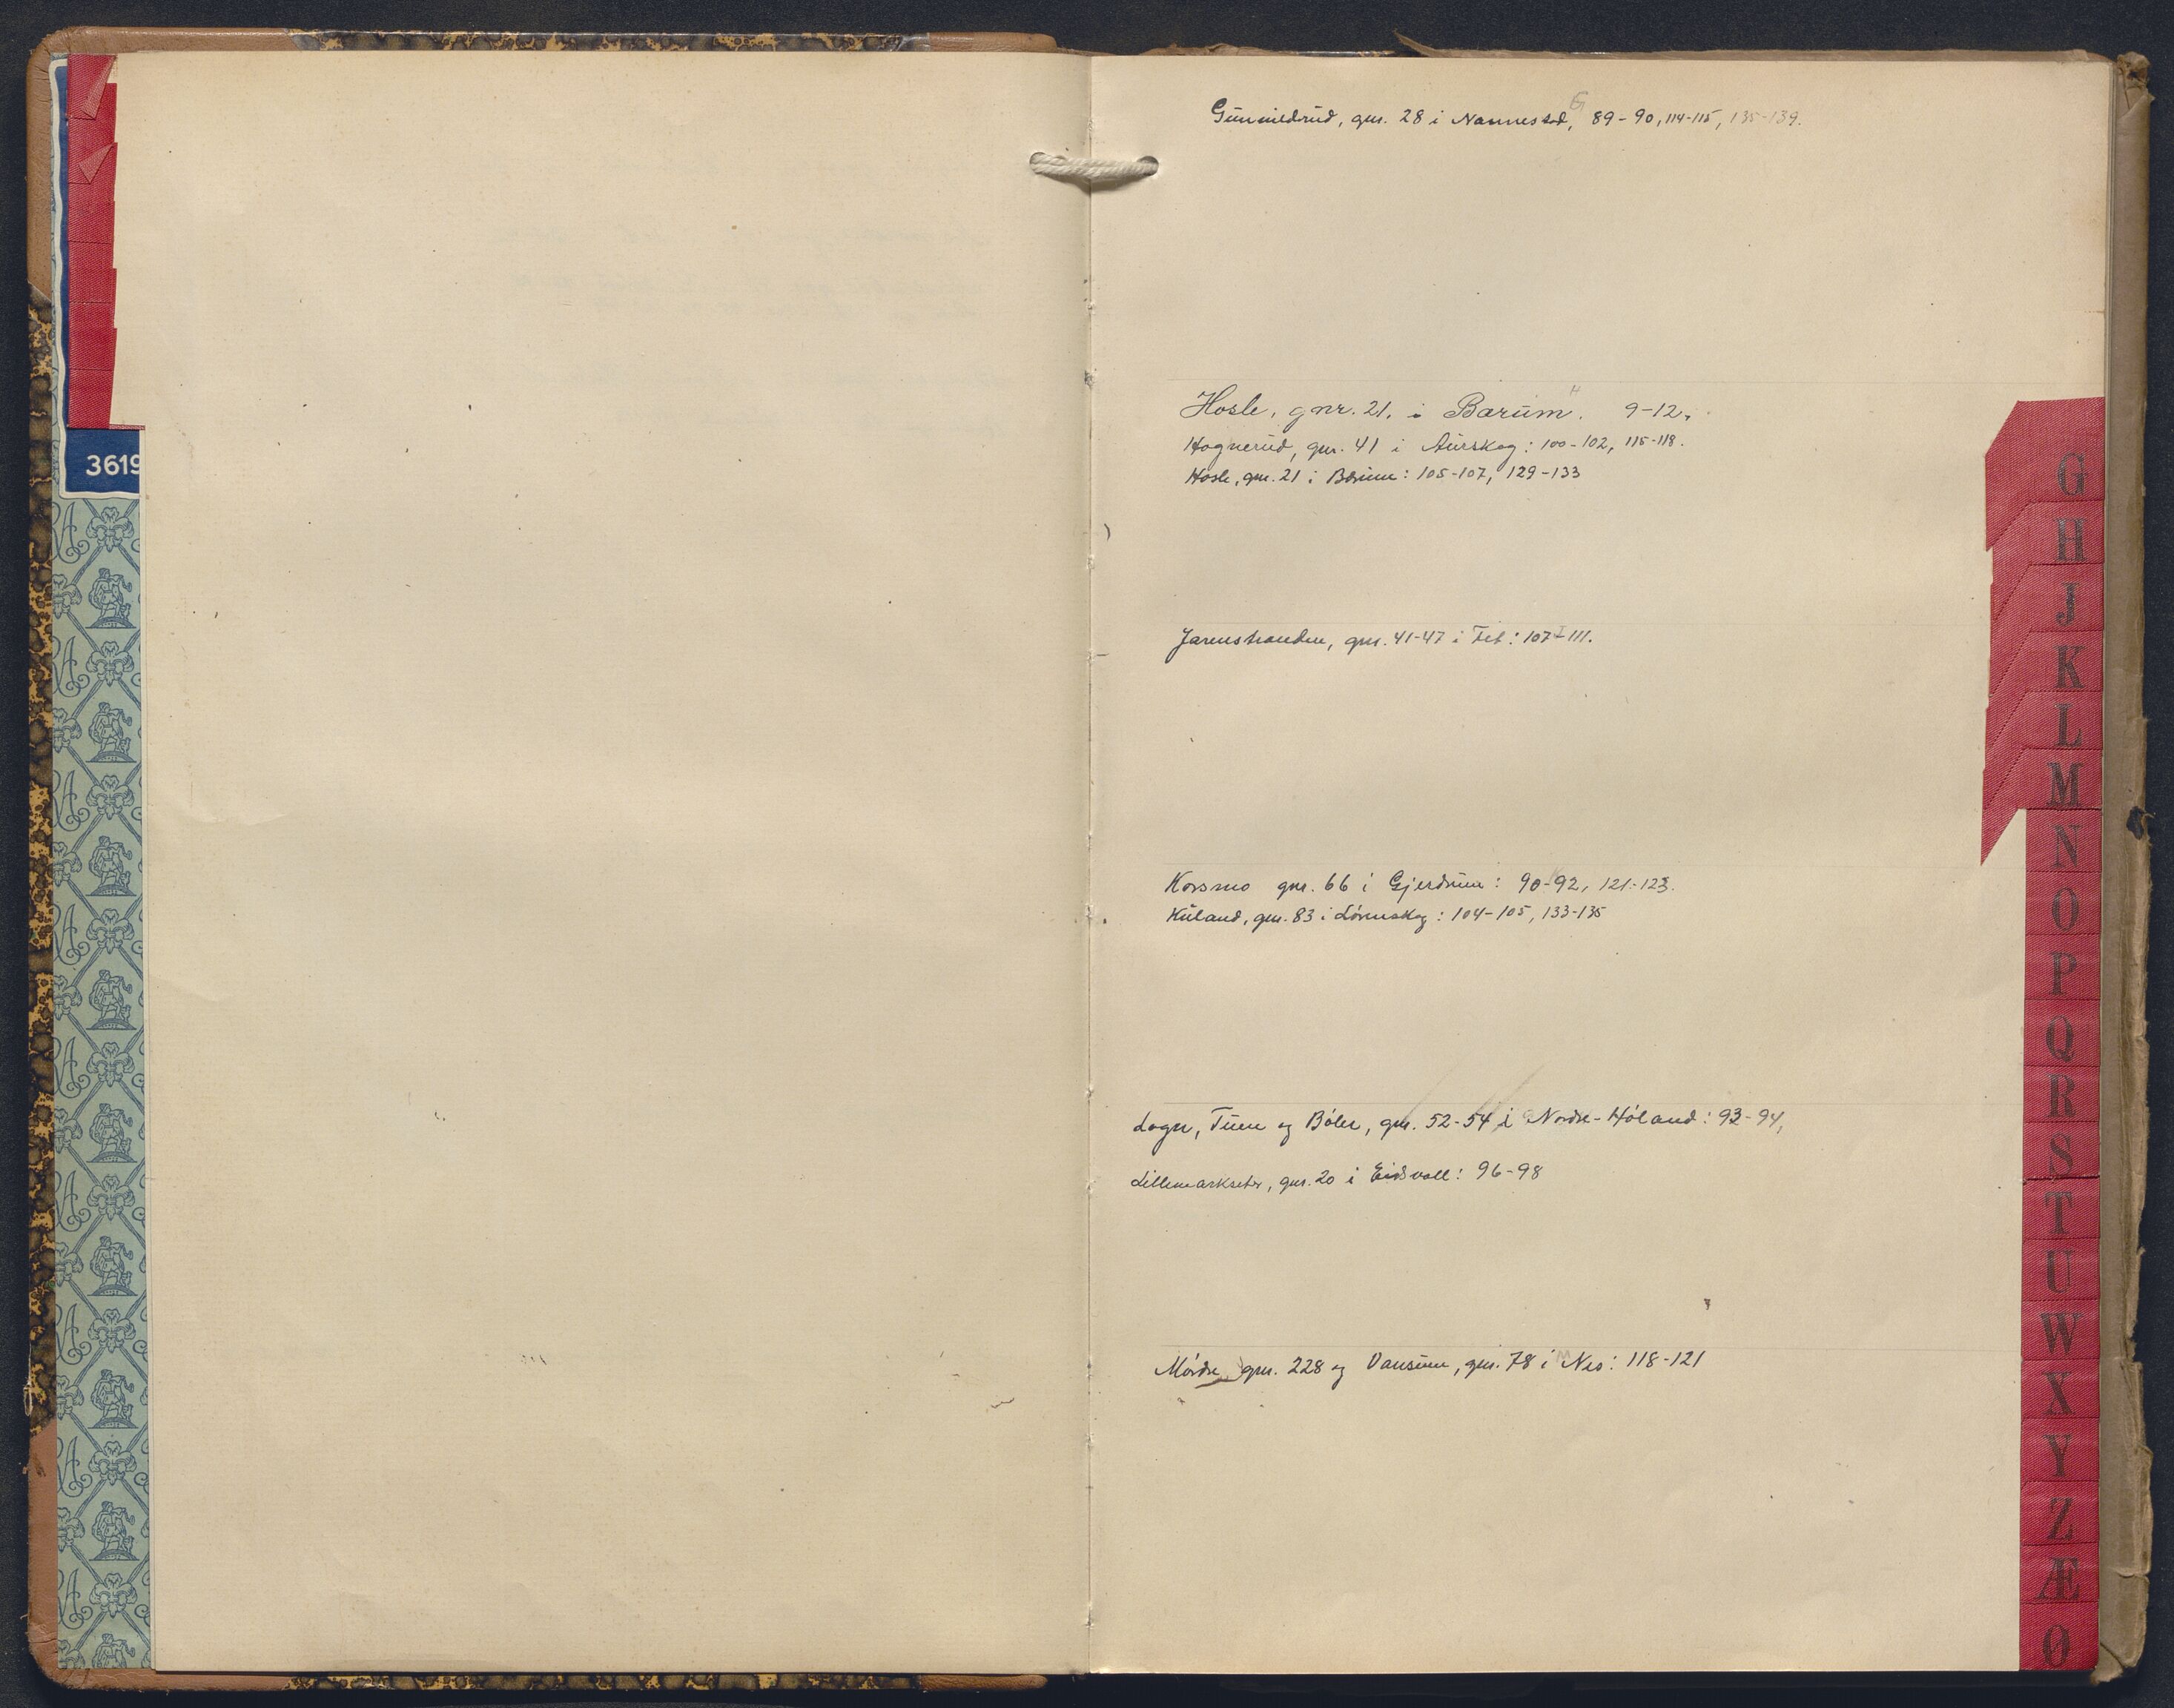 3619
G
Gunnildrud, gnr. 28 i Nannestad, 89-90, 114-115, 135-139.
H
Hosle, gnr. 21. i Bærum. 9-12,
Hognerud, gnr. 41 i Aurskog: 100-102, 115-118.
Hosle, gnr. 21 i Bærum: 105-107, 129-133
Jarenstranden, gnr. 41-47 i Fet: 107-111.
Korsmo gnr. 66 i Gjerdrum: 90-92, 121-123.
Kuland, gnr. 83 i Lörenskog: 104-105, 133-135
Logn, Tuen og Böler, gnr. 52-54 i Nordre-Höland: 93-94,
Lillemarkseter, gnr. 20 i Eidsvoll: 96-98
Mördre gnr. 228 og Vansum, gnr. 78 i Nes: 118-121
G
H
J
K
L
M
N
O
P
Q
R
S
T
U
W
X
Y
Z
Æ
Ø